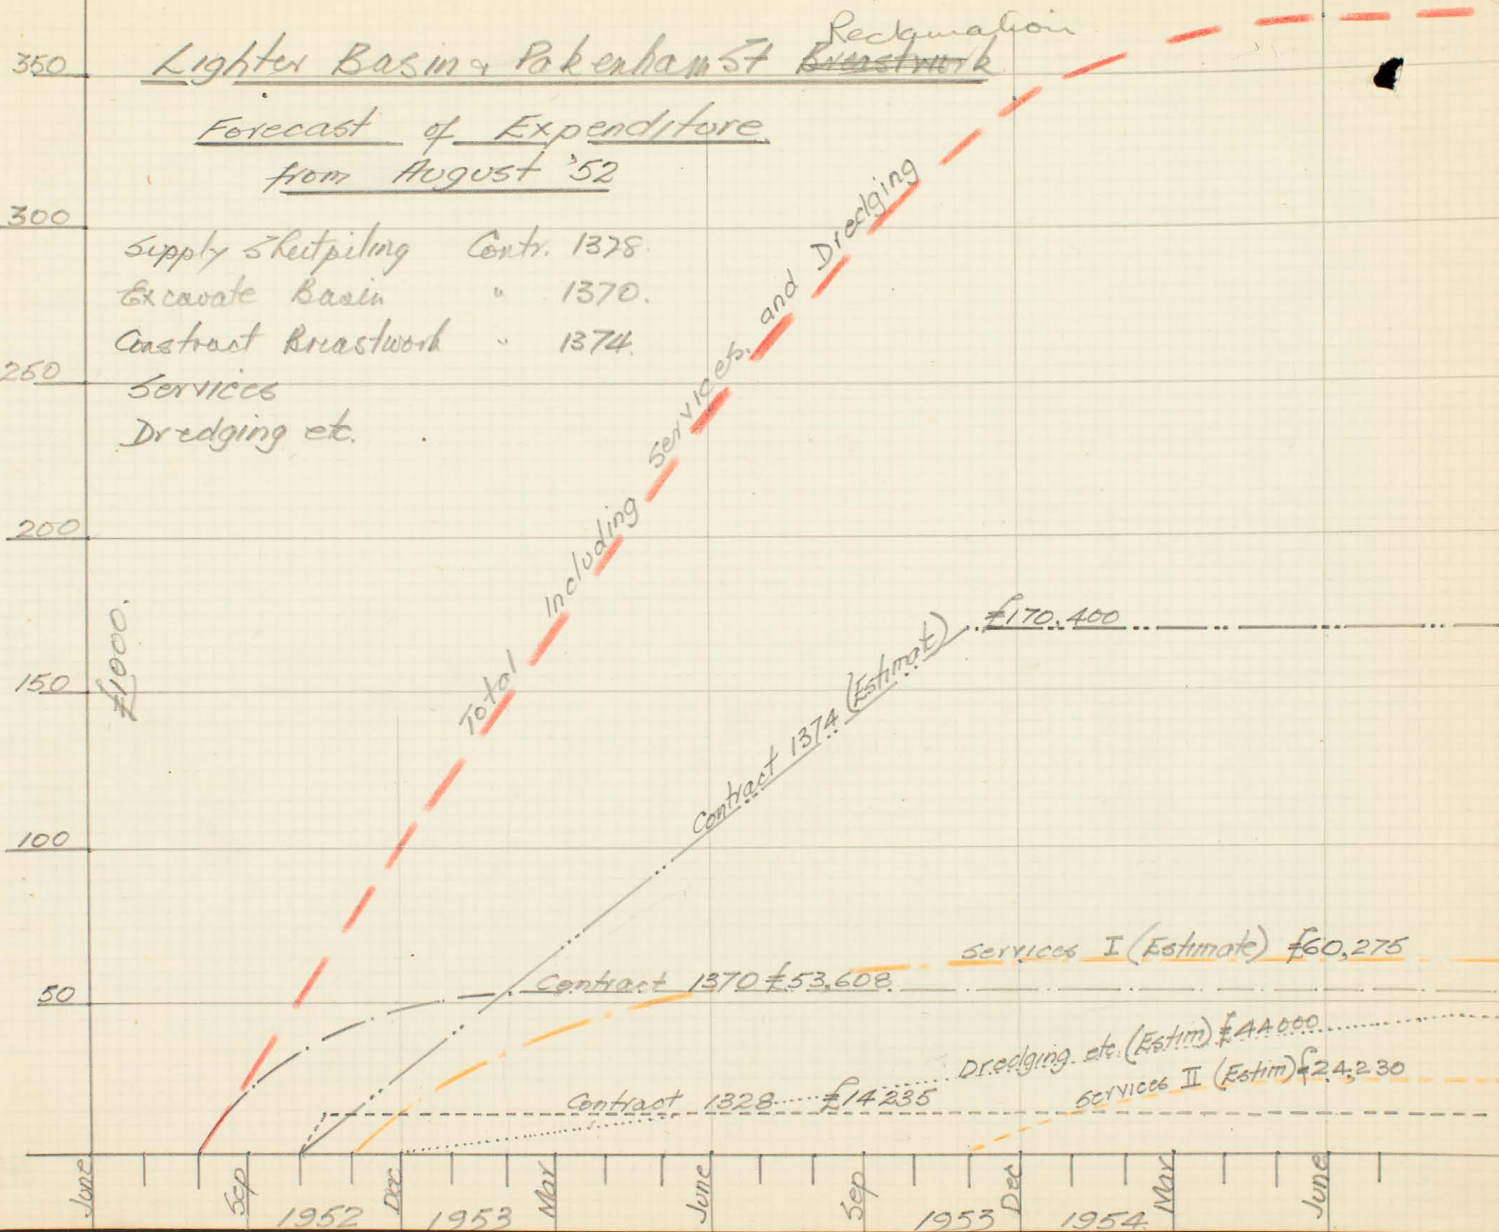 Reclamation
Lighter Basin & Pakenham St Breastwork
Forecast of Expenditure
from August '52
Supply Sheetpiling Contr. 1328.
Excavate Basin " 1370.
Construct Breastwork " 1374.
Services
Dredging etc.
350
300
250
200
150
100
50
£1000.
Total Including Services. and Dredging
Contract 1374 (Estimat)
£170,400
Services I (Estimate) £60,275
Contract 1370 £53,608
Dredging etc. (Estim) £44000
Services II (Estim) £24,230
Contract 1328 £14235
June
Sep
Dec
Mar
June
Sep
Dec
Mar
June
1952
1953
1953
1954